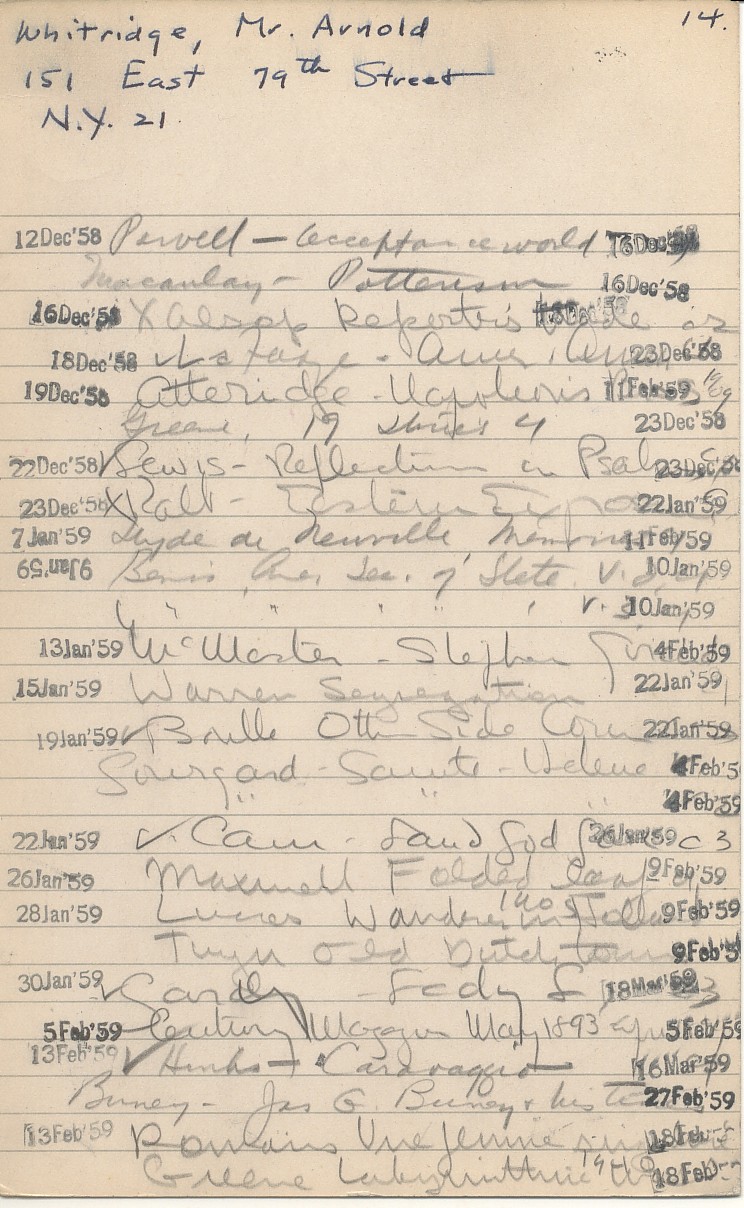 14.
Whitridge, Mr. Arnold
151 East 79th Street
N.Y. 21.
12Dec'58 Powell — Acceptance world 16Dec'58
Macaulay - Potterism 16Dec'58
16Dec'58 X Alsop Reporter's
18Dec'58 ✓ La Farge - 23Dec'58
19Dec'58 Atteridge - Napoleon's 11Feb'59
Greene, 19 stories 23Dec'58
22Dec'58 ✓ Lewis - Reflection on Psalms 23Dec'58
23Dec'58 X Ralt - Eastern 22Jan'59
7Jan'59 Hyde de Neuville Memoirs 11Feb'59
9Jan'59 Bemis Amer. Sec. of State. V. 10Jan'59
" " " " V. 10Jan'59
13Jan'59 McMaster - Stephen Girard 4Feb'59
15Jan'59 Warren Segregation 22Jan'59
19Jan'59 ✓ Boulle Oth Side Coin 22Jan'59
Gourgaud - Sainte-Helene 4Feb'5
" " " 4Feb'5
22Jan'59 ✓ Cam - 26Jan'59 C 3
26Jan'59 Maxwell Folded Leaf 9Feb'59
28Jan'59 Lucas Wanderer in Holland 9Feb'59
Twyn Old Dutch towns 9Feb'5
30Jan'59 ✓ - Lady L 18Mar'59
5Feb'59 Century Magazin May 1893 5Feb'59
13Feb'59 ✓ Hinks — Caravaggio 16Mar'59
Birney - Jas G. Birney & his times 27Feb'59
13Feb'59 Romains Une femme 18Feb'5
Greene Labyrinthine 18Feb'5